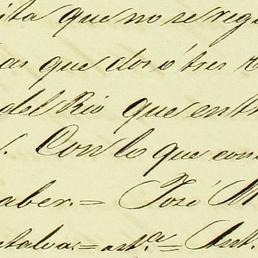 ita que no se regi
as que dos ó tres
del Rio que entr
. Con lo que con
aber.= José M
ntalva.= ant.ª= Ant.